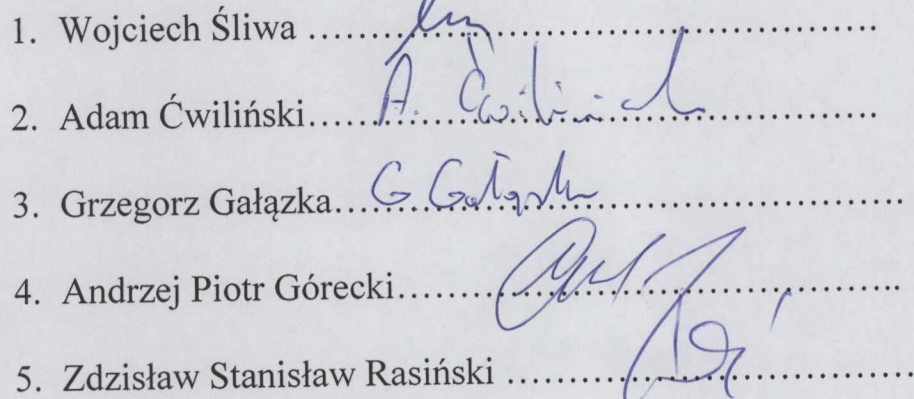 1. Wojciech Śliwa ..........................................................
2. Adam Ćwiliński.......................................................... A. Ćwiliński
3. Grzegorz Gałązka.......................................................... G Gałązka
4. Andrzej Piotr Górecki..........................................................
5. Zdzisław Stanisław Rasiński ..........................................................